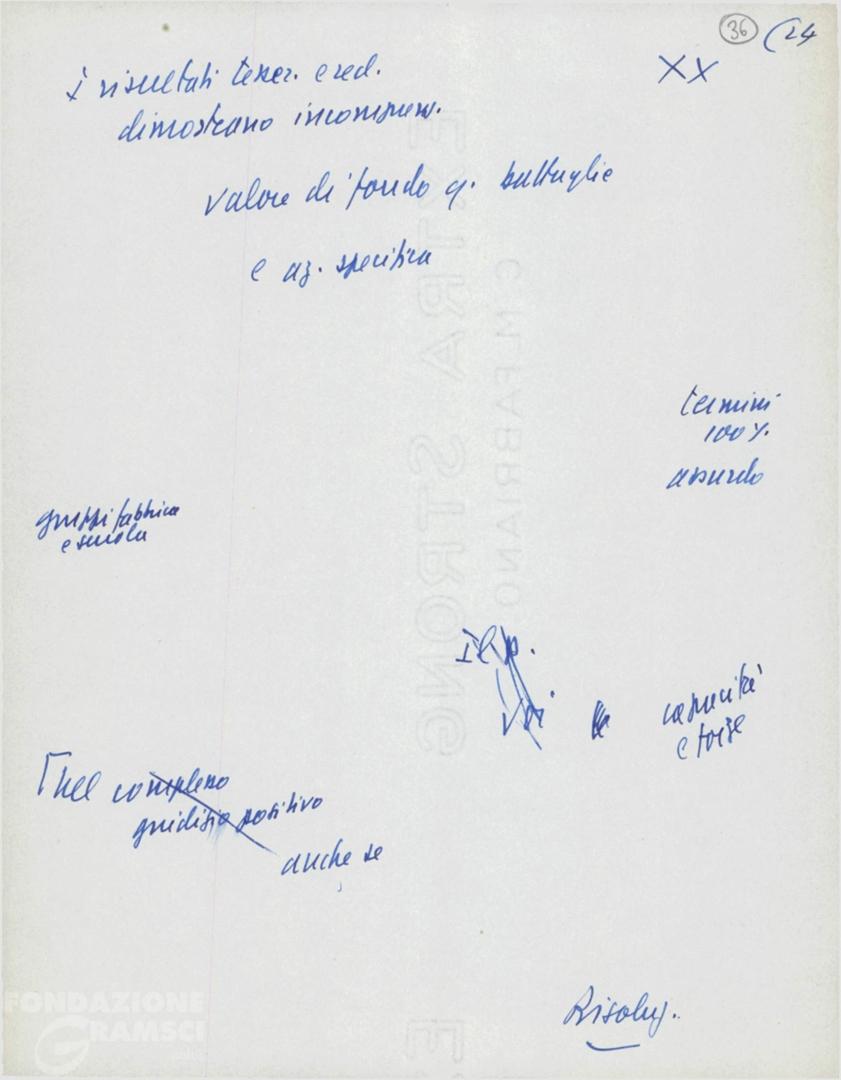 36 (24
XX
I risultati tesser. e red.
dimostrano incompren.
valore di fondo q. battaglie
e az. specifica
termini
100%.
assurdo
gruppi fabbrica
e scuola
Il p.
Vi
capacità
e forze
Nel complesso
giudizio positivo
anche se
Risoluz.
EXTRA STRONG
C.M. FABRIANO
FONDAZIONE
GRAMSCI